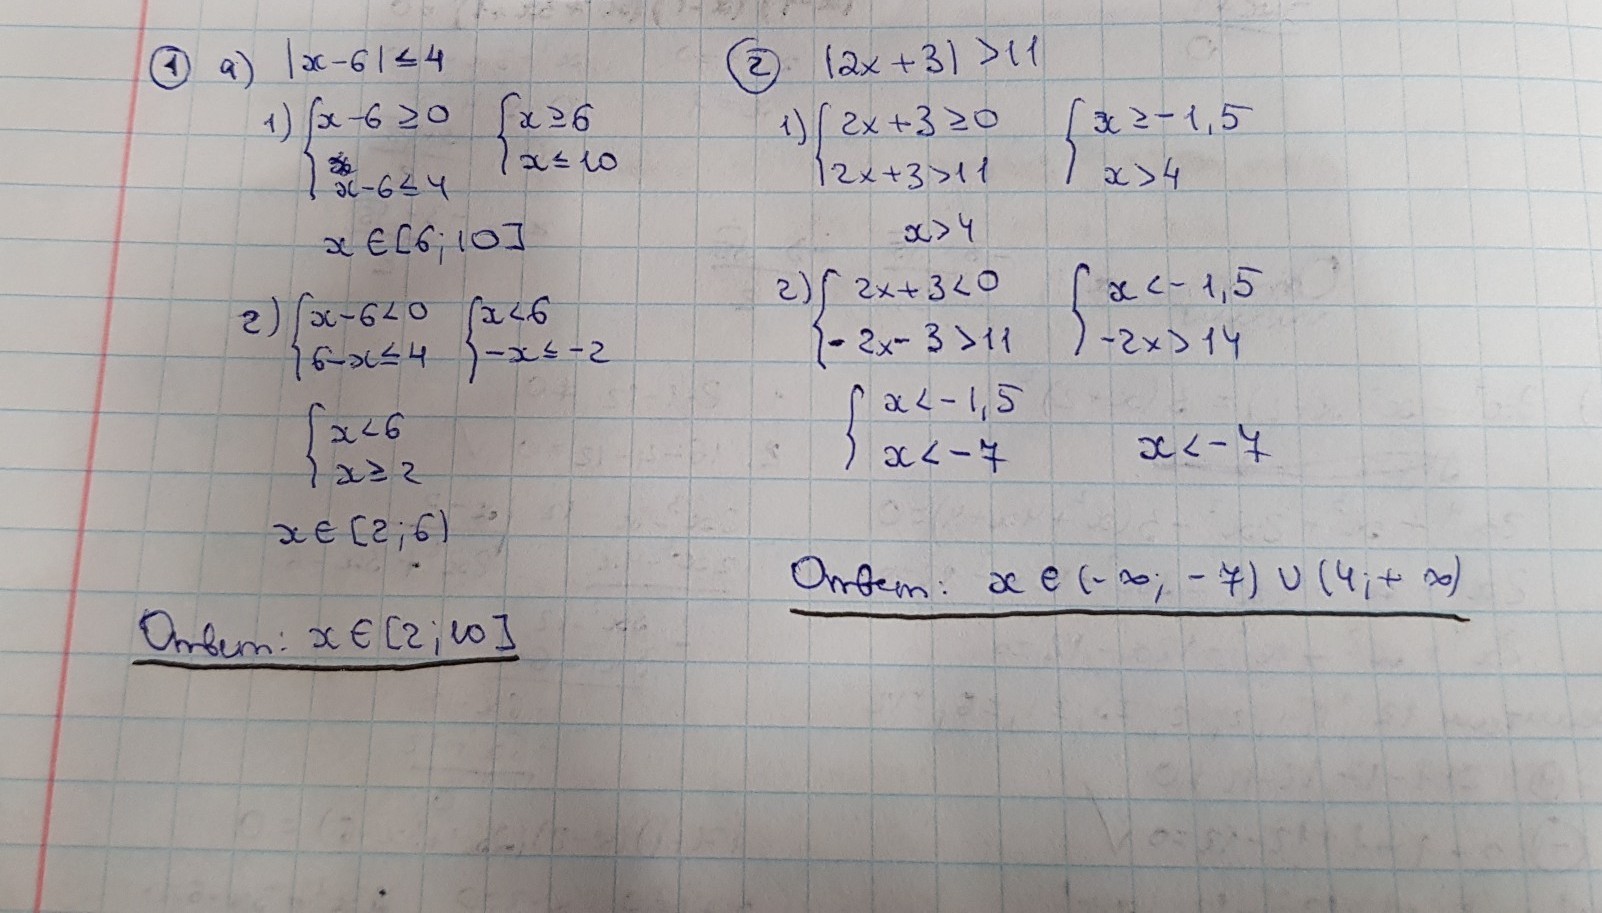 ① а) |x-6| ≤ 4
1) { x-6 ≥ 0 { x ≥ 6
x-6 ≤ 4 x ≤ 10
x ∈ [6; 10]
2) { x-6 < 0 { x < 6
6-x ≤ 4 -x ≤ -2
{ x < 6
x ≥ 2
x ∈ [2; 6)
Ответ: x ∈ [2; 10]
② |2x + 3| > 11
1) { 2x + 3 ≥ 0 { x ≥ -1,5
2x + 3 > 11 x > 4
x > 4
2) { 2x + 3 < 0 { x < -1,5
-2x - 3 > 11 -2x > 14
{ x < -1,5
x < -7 x < -7
Ответ: x ∈ (-∞; -7) ∪ (4; +∞)